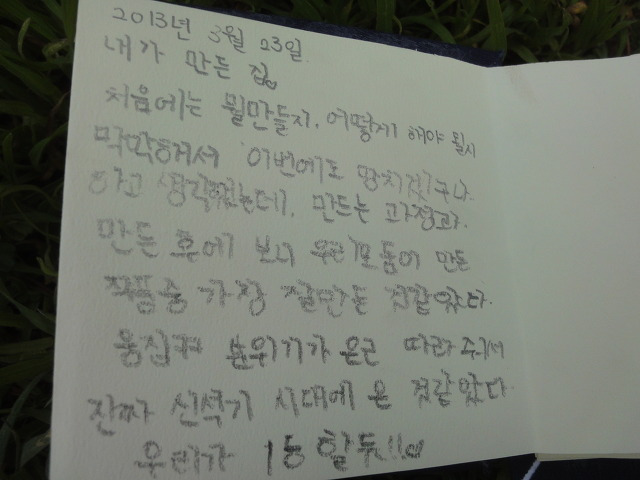 2013년 3월 23일.
내가 만든 집
처음에는 뭘만들지, 어떻게 해야 될지
막막해서 이번에도 망치겠구나
하고 생각했는데, 만드는 과정과
만든 후에 보니 우리모둠이 만든
작품중 가장 잘만든 것같았다.
움집의 분위기가 은근 따라 주어서
진짜 신석기 시대에 온 것같았다.
우리가 1등 할듯!!!